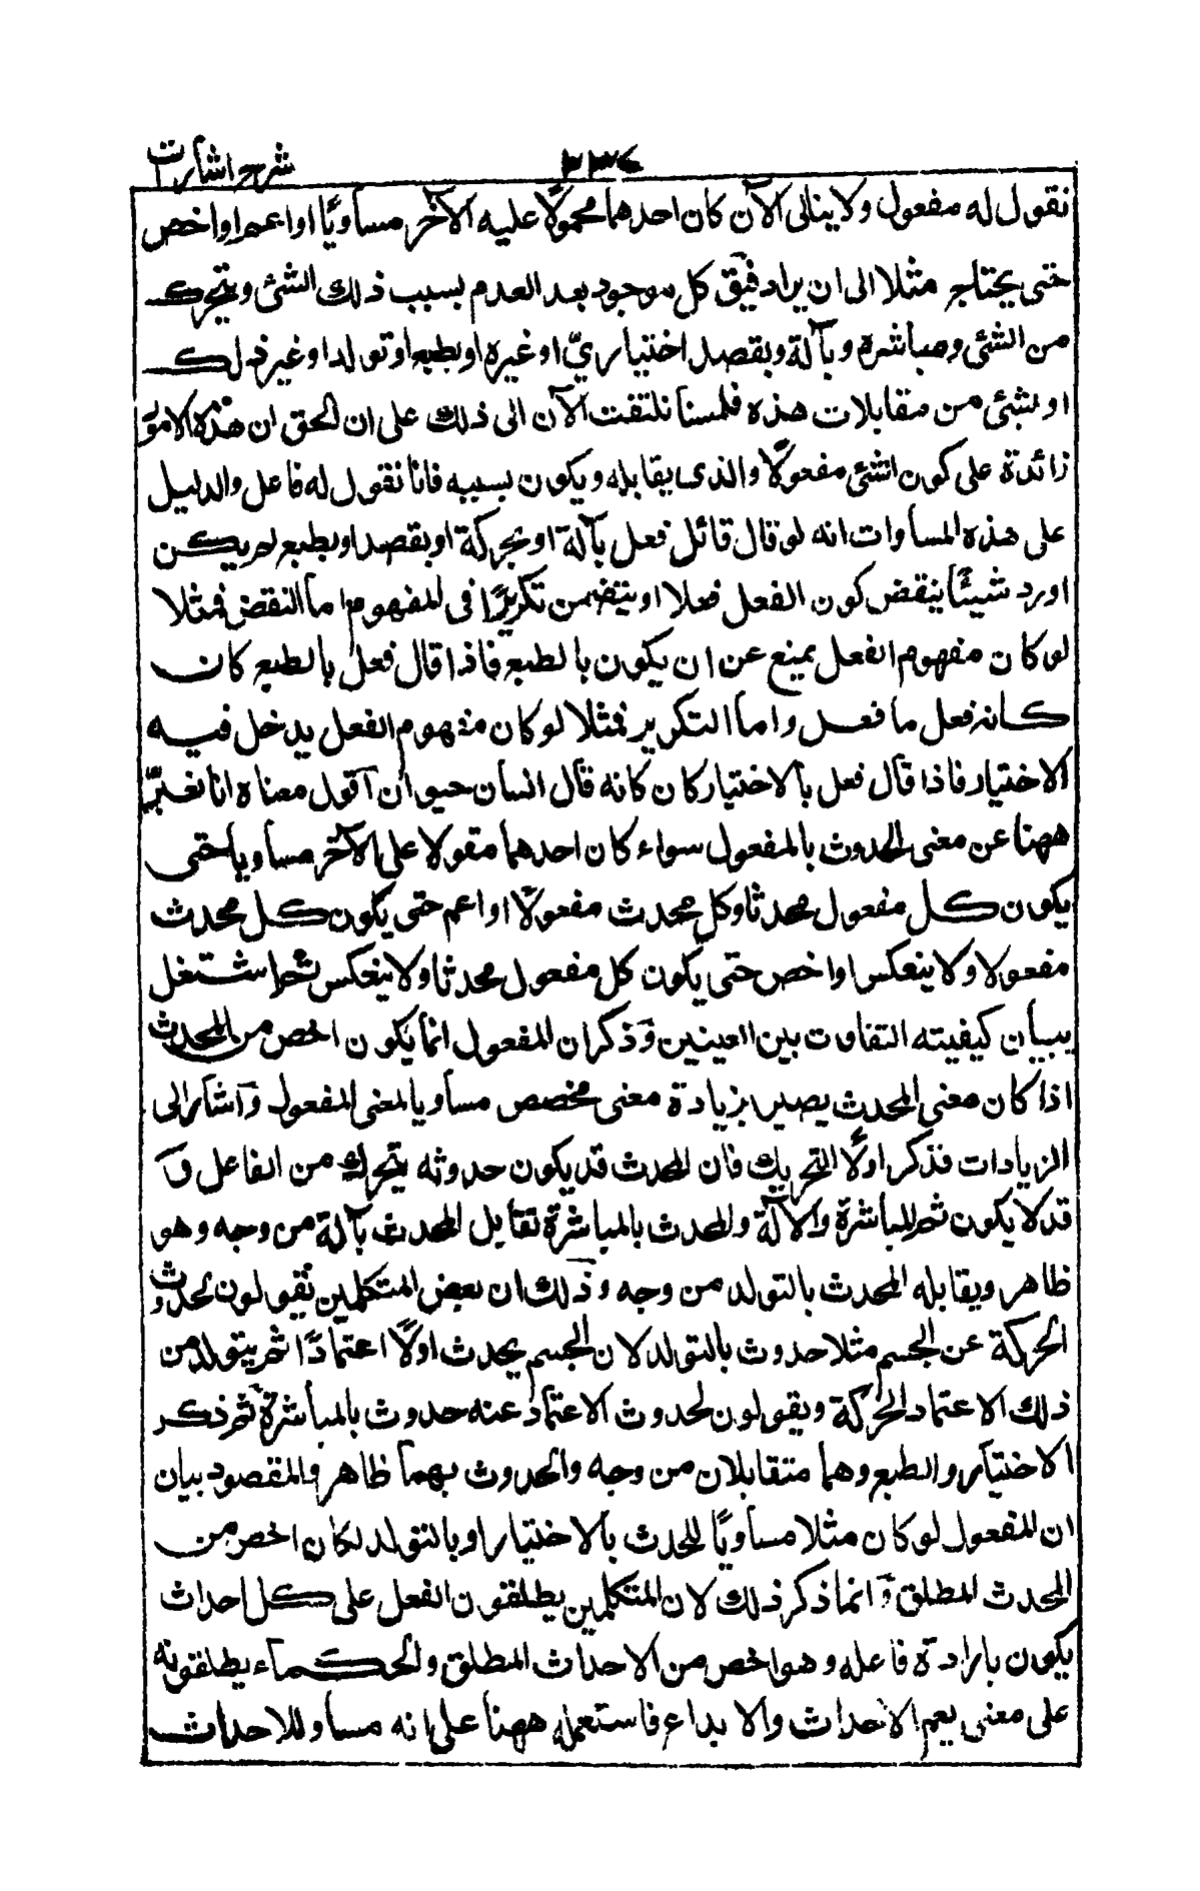 شرح اشارات
نقول له مفعول ولا يبالى الآن كان احدهما محمولًا عليه الآخر مساويًا او اعم او اخص
حتى يحتاج مثلا الى ان يراد فيق كل موجود بعد العدم بسبب ذلك الشئ وبتحرك
من الشئ ومباشرة وبآلة وبقصد اختياريّ او غيره او بطبع او تولد او غير ذلك
او بشئ من مقابلات هذه فلسنا نلتفت الآن الى ذلك على ان الحق ان هذه الامور
زائدة على كون الشئ مفعولًا والذى يقابله ويكون بسببه فانا نقول له فاعل والدليل
على هذه المساوات انه لو قال قائل فعل بآلة او بحركة او بقصد او بطبع لم يكن
اورد شيئًا ينقض كون الفعل فعلا او يتضمن تكريرًا فى المفهوم اما النقض فمثلا
لو كان مفهوم الفعل يمنع عن ان يكون بالطبع فاذا قال فعل بالطبع كان
كانه فعل ما فعل واما التكرير فمثلا لو كان مفهوم الفعل يدخل فيه
الاختيار فاذا قال فعل بالاختيار كان كانه قال انسان حيوان آقول معناه انا نعبّر
ههنا عن معنى الحدوث بالمفعول سواء كان احدهما مقولا على الآخر مساويا حتى
يكون كل مفعول محدثا وكل محدث مفعولًا او اعم حتى يكون كل محدث
مفعولا ولا ينعكس او اخص حتى يكون كل مفعول محدثا ولا ينعكس ثم اشتغل
ببيان كيفيته التفاوت بين المعينين وذكر ان المفعول انما يكون اخص من المحدث
اذا كان معنى المحدث يصير بزيادة معنى مخصص مساويا لمعنى المفعول وآشار الى
الزيادات فذكر اولًا التحريك فان المحدث قد يكون حدوثه بتحرك من الفاعل وٓ
قد لا يكون ثم المباشرة والآلة والمحدث بالمباشرة تقابل المحدث بآلة من وجه وهو
ظاهر ويقابله المحدث بالتولد من وجه وذلك ان بعض المتكلمين يقولون لحدوث
الحركة عن الجسم مثلا حدوث بالتولد لان الجسم يحدث اولًا اعتمادًا ثم يتولد من
ذلك الاعتماد الحركة ويقولون لحدوث الاعتماد عنه حدوث بالمباشرة ثم ذكر
الاختيار والطبع وهما متقابلان من وجه والحدوث بهما ظاهر والمقصود بيان
ان المفعول لو كان مثلا مساويًا للمحدث بالاختيار او بالتولد لكان اخص من
المحدث المطلق وٓ انما ذكر ذلك لان المتكلمين يطلقون الفعل على كل احداث
يكون بارادة فاعله وهو اخص من الاحداث المطلق والحكماء يطلقونه
على معنى يعم الاحداث والابداع فاستعمله ههنا على انه مساو للاحداث